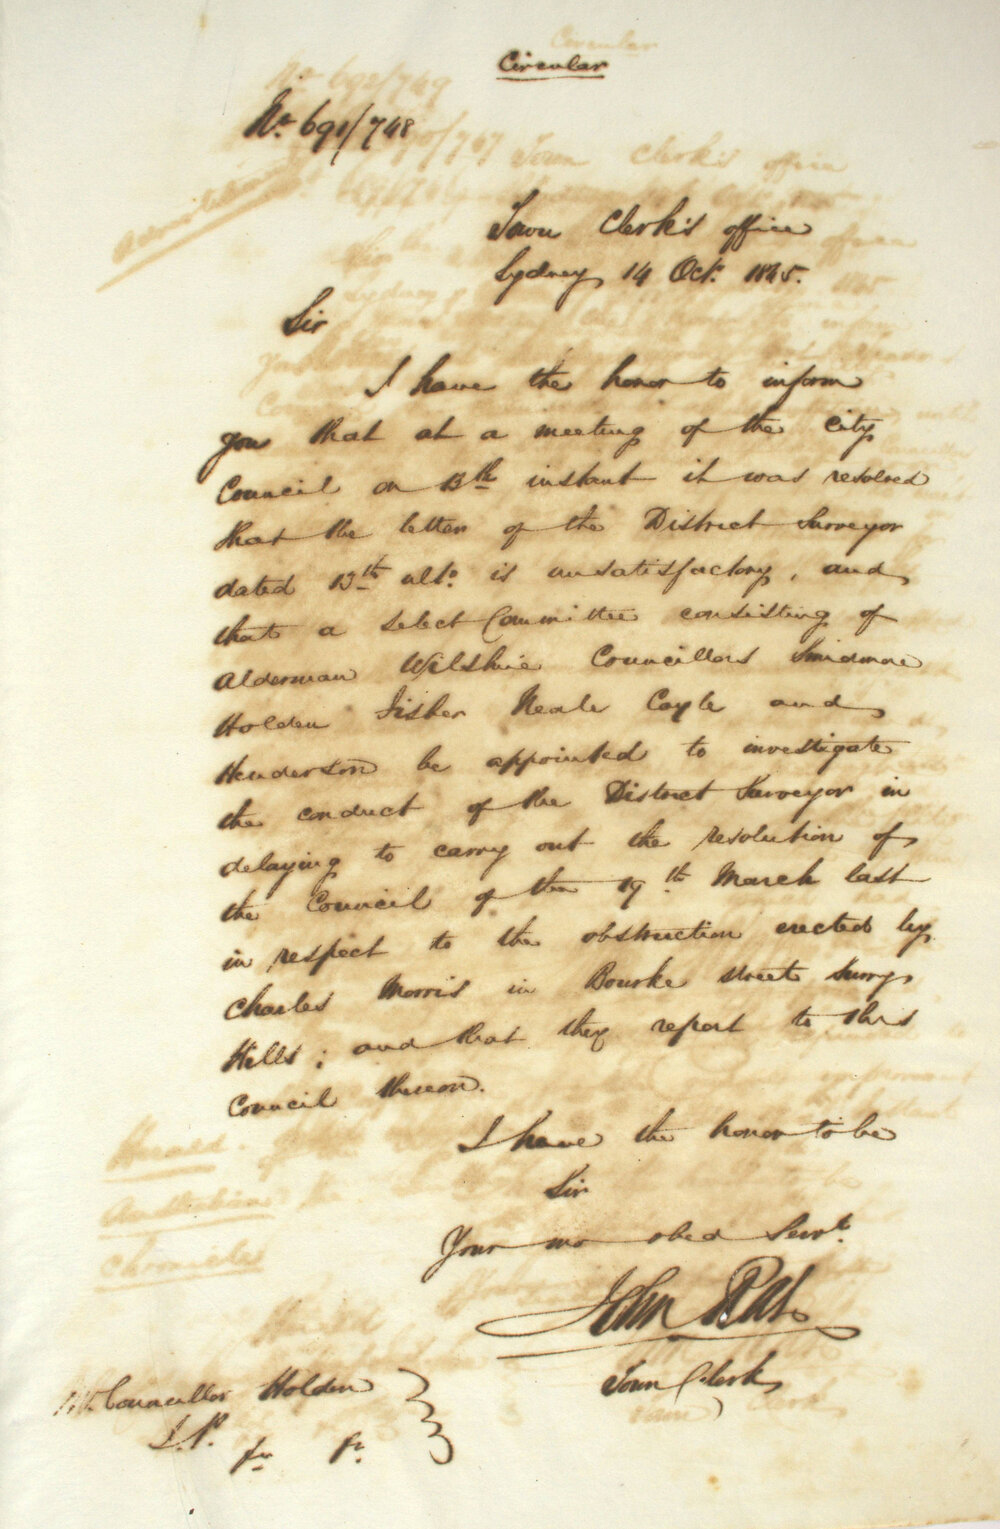 Circular
No. 691/748
Town Clerk's office
Sydney 14 Oct. 1845.
Sir
I have the honor to inform
you that at a meeting of the city
Council on 13th instant it was resolved
that the letter of the District Surveyor
dated 13th ulto. is unsatisfactory, and
that a select Committee consisting of
Alderman Wilshire Councillors Smidmore
Holden Fisher Neale Coyle and
Henderson be appointed to investigate
the conduct of the District Surveyor in
delaying to carry out the resolution of
the Council of the 19th March last
in respect to the obstruction erected by
Charles Morris in Bourke street Surry
Hills; and that they report to this
Council thereon.
I have the honor to be
Sir
Your mo obed Servt.
John Rae
Town Clerk
Mr. Councillor Holden
J.P.
Herald.
Australian
Chronicle